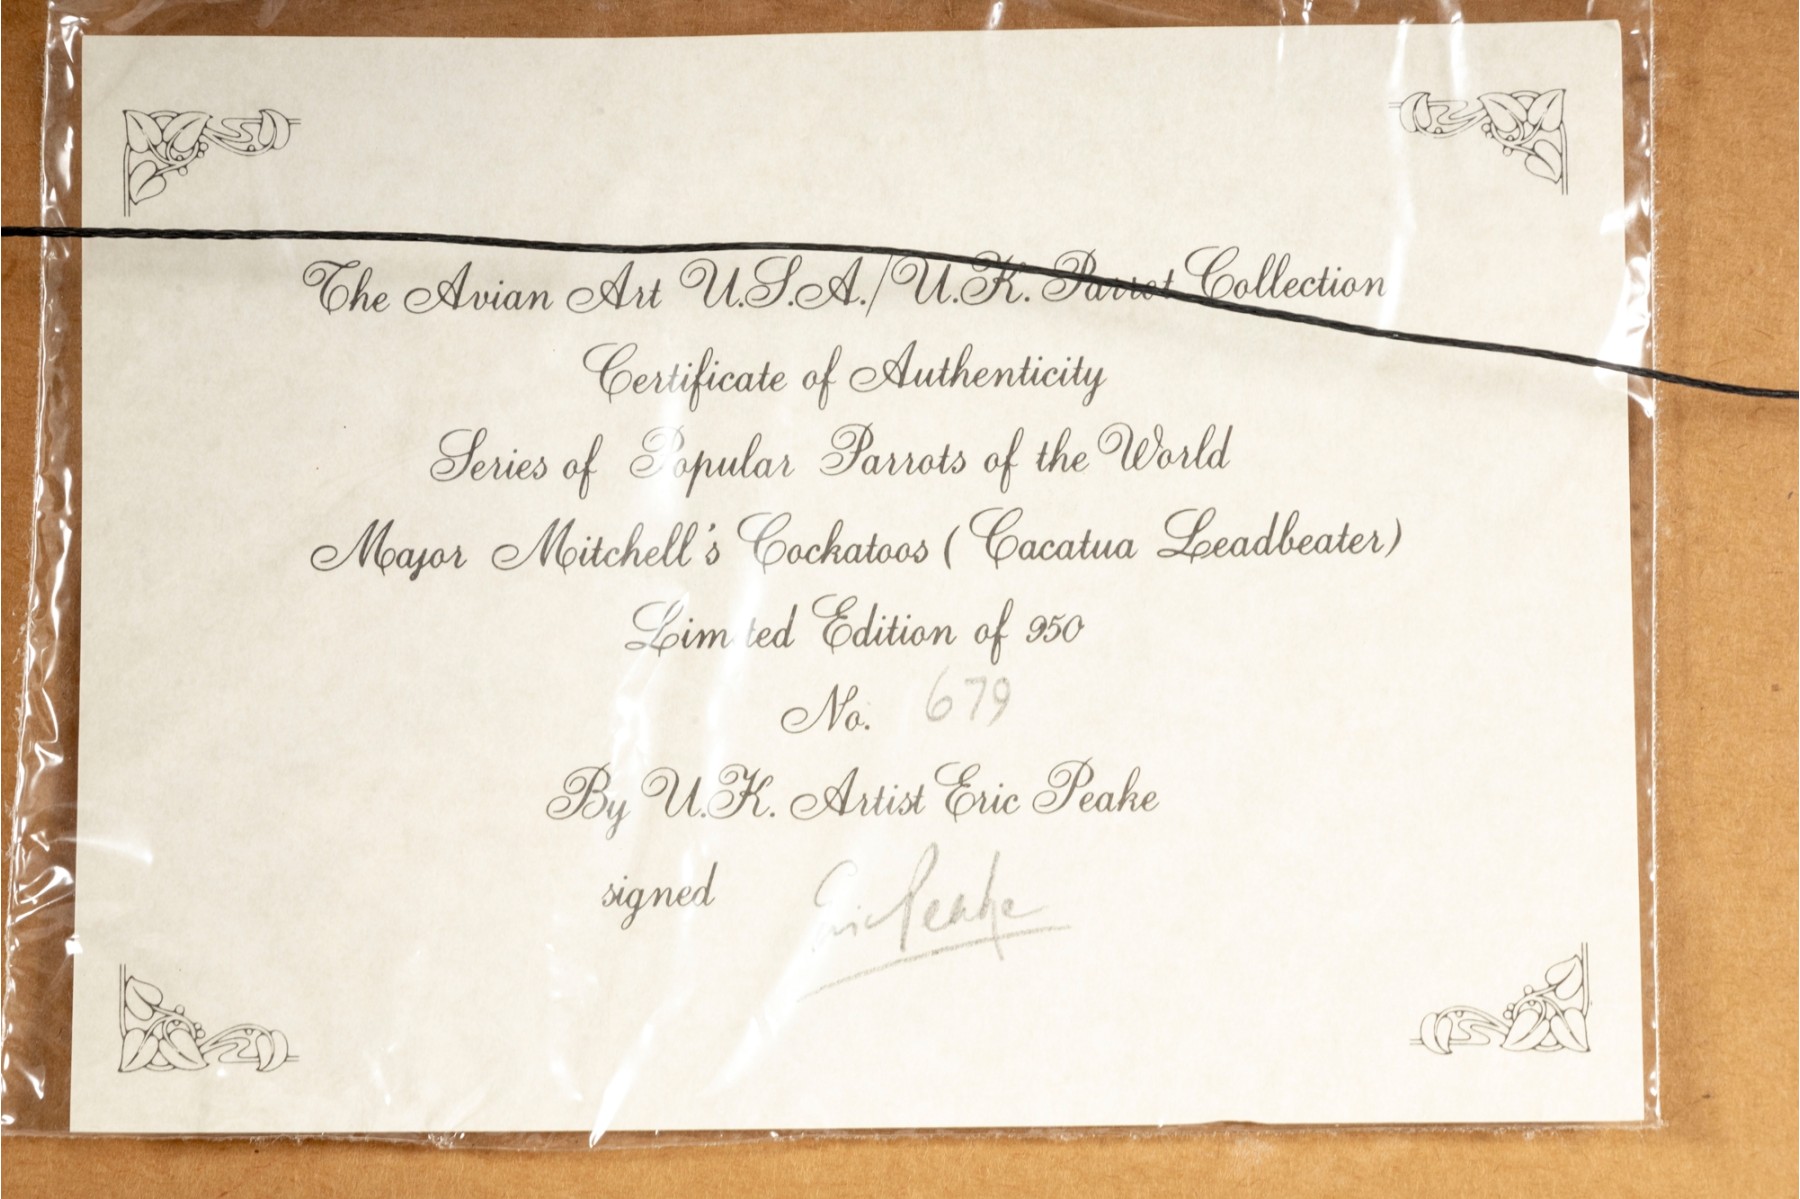 The Avian Art U.S.A./U.K. Parrot Collection
Certificate of Authenticity
Series of Popular Parrots of the World
Major Mitchell's Cockatoos (Cacatua Leadbeater)
Limited Edition of 950
No. 679
By U.K. Artist Eric Peake
signed Eric Peake